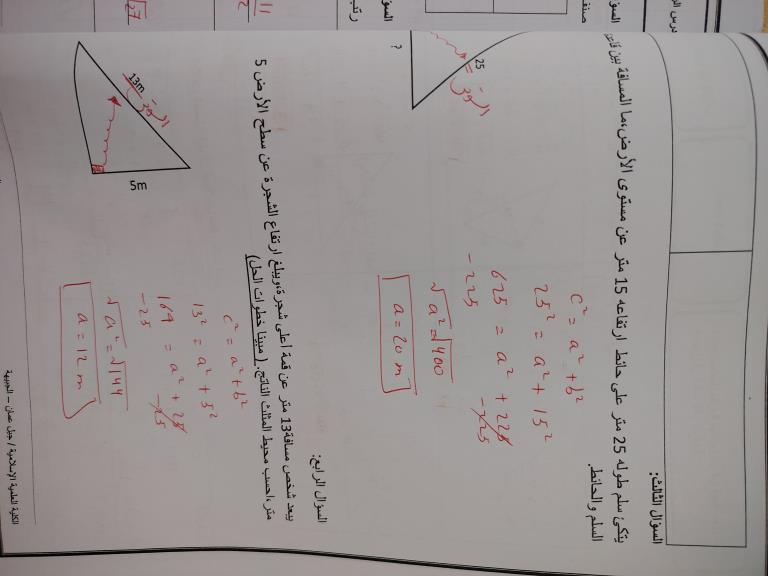 السؤال الثالث:
يتكئ سلم طوله 25 متر على حائط ارتفاعه 15 متر عن مستوى الأرض،ما المسافة بين قاعدة
السلم والحائط.
c² = a² + b²
25² = a² + 15²
625 = a² + 225
-225 -225
√a² = √400
a = 20 m
25
الوتر
?
السؤال الرابع:
يبعد شخص مسافة 13 متر عن قمة أعلى شجرة،ويبلغ ارتفاع الشجرة عن سطح الأرض 5
متر،احسب محيط المثلث الناتج. (مبينا خطوات الحل)
c² = a² + b²
13² = a² + 5²
169 = a² + 25
-25 -25
√a² = √144
a = 12 m
13m
الوتر
5m
الكلية العلمية الإسلامية / جبل عمان – الجبيهة